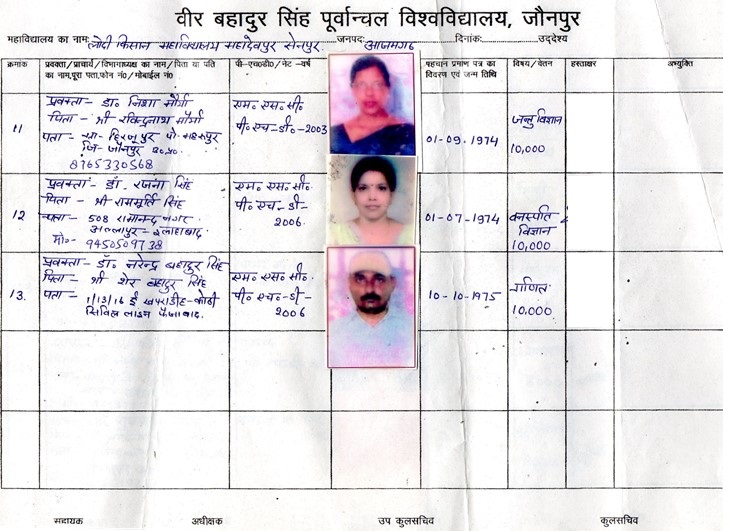 वीर बहादुर सिंह पूर्वान्चल विश्वविद्यालय, जौनपुर
महाविद्यालय का नामः लोदी किसान महाविद्यालय महादेवपुर सेनपुर. जनपदः आजमगढ़ दिनांकः उद्देश्य
क्रमांक प्रवक्ता/प्राचार्य/विभागाध्यक्ष का नाम/पिता या पति का नाम,पूरा पता,फोन नं0/मोबाईल नं0 पी-एच0डी0/नेट -वर्ष पहचान प्रमाण पत्र का विवरण एवं जन्म तिथि विषय/वेतन हस्ताक्षर अभ्युक्ति
11 प्रवक्ता- डा० निशा मौर्या एम० एस० सी० जन्तु विज्ञान
पिता - श्री रविन्द्रनाथ मौर्या पी० एच-डी०-2003 01-09-1974 10,000
पता - ग्रा० हिरजूपुर पो०
जि- जौनपुर उ०प्र०
8765330568
12 प्रवक्ता- डॉ. रंजना सिंह एम० एस० सी०
पिता - श्री राममूर्ति सिंह पी० एच- डी० - 01-07-1974 वनस्पति
पता- 508 रामानन्द नगर 2006. विज्ञान
अल्लापुर - इलाहाबाद. 10,000
मो०- 9450509738
13. प्रवक्ता- डॉ. नरेन्द्र बहादुर सिंह एम० एस० सी०. गणित
पिता - श्री शेर बहादुर सिंह पी० एच० - डी - 10-10-1975 10.000
पता - 1/13/16 ई खपराडीह-कोठी 2006
सिविल लाइन फैजाबाद.
सहायक अधीक्षक उप कुलसचिव कुलसचिव